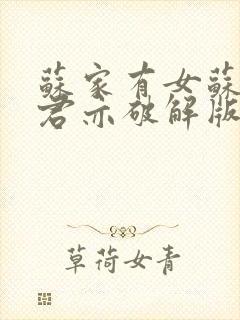 蘇家有女蘇
君亦破解版
草荷女青